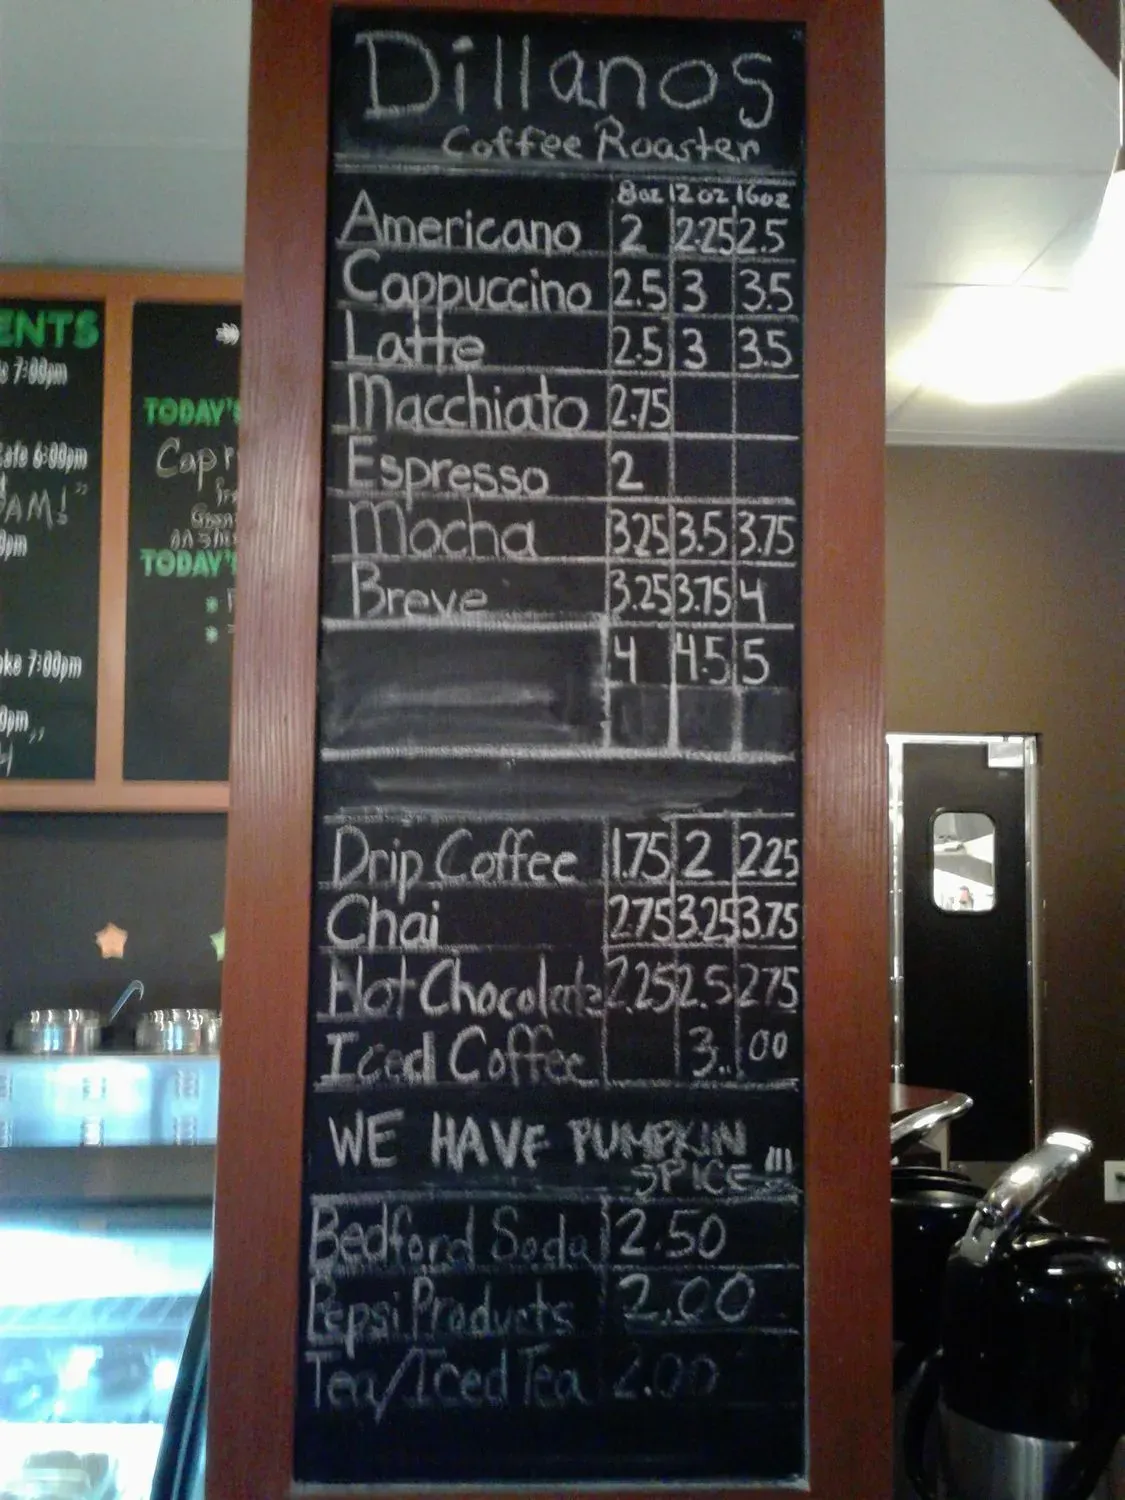 Dillanos
Coffee Roaster
8oz 12oz 16oz
Americano 2 2.25 2.5
Cappuccino 2.5 3 3.5
Latte 2.5 3 3.5
Macchiato 2.75
Espresso 2
Mocha 3.25 3.5 3.75
Breve 3.25 3.75 4
4 4.5 5
Drip Coffee 1.75 2 2.25
Chai 2.75 3.25 3.75
Hot Chocolate 2.25 2.5 2.75
Iced Coffee 3..00
WE HAVE PUMPKIN
SPICE!!!
Bedford Soda 2.50
Pepsi Products 2.00
Tea/Iced Tea 2.00
ENTS
7:00pm
6:00pm
7:00pm
TODAY'S
TODAY'